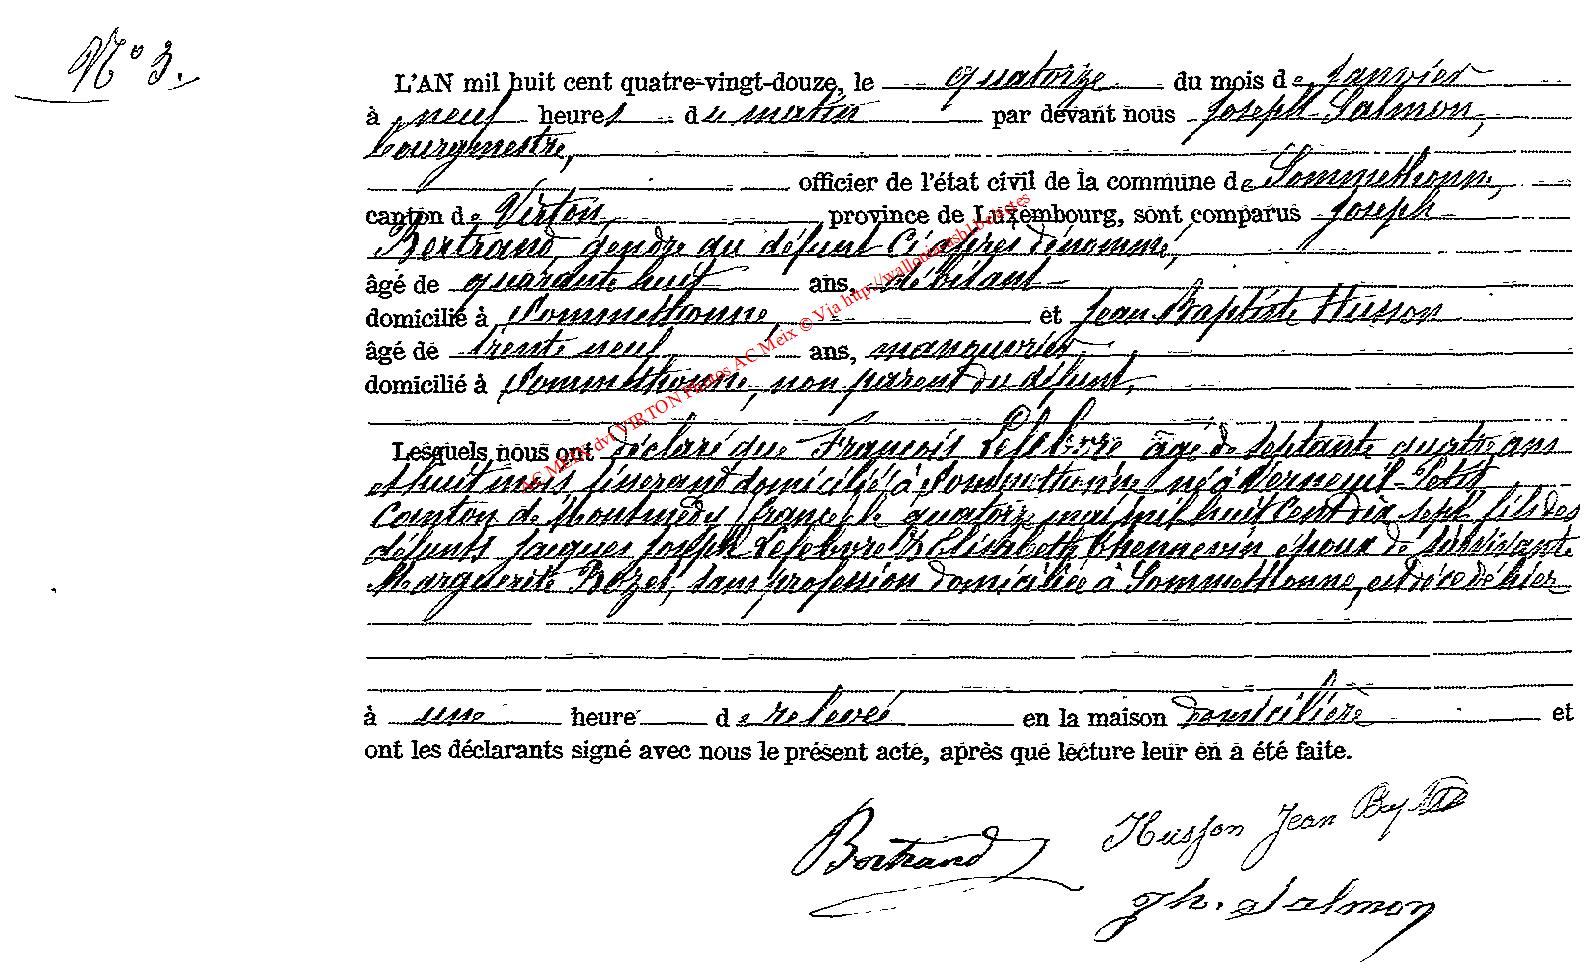 N° 3.
L'AN mil huit cent quatre-vingt-douze, le quatorze du mois de Janvier
à neuf heures du matin par devant nous Joseph Salmon,
bourgmestre,
officier de l'état civil de la commune de Sommethonne,
canton de Virton, province de Luxembourg, sont comparus Joseph
Bertrand, gendre du défunt ci après dénommé,
âgé de quarante huit ans, débitant
domicilié à Sommethonne, et Jean Baptiste Husson
âgé de trente neuf ans, manouvrier
domicilié à Sommethonne, non parent du défunt,
Lesquels nous ont déclaré que François Lefebvre âgé de septante quatre ans
et huit mois, domicilié à Sommethonne, né à Verneuil-Petit
canton de Montmédy (france) le quatorze mai mil huit cent dix sept fils des
défunts Jacques Joseph Lefebvre & Elisabeth époux de survivante
Marguerite Rozet, sans profession domiciliée à Sommethonne, est décédé hier
à une heure de relevée en la maison domicilière et
ont les déclarants signé avec nous le présent acte, après que lecture leur en a été faite.
Bertrand
Husson Jean Bapt
Jh. Salmon
AC MEIX dvt VIRTON Photos AC Meix © Via http://wallonica